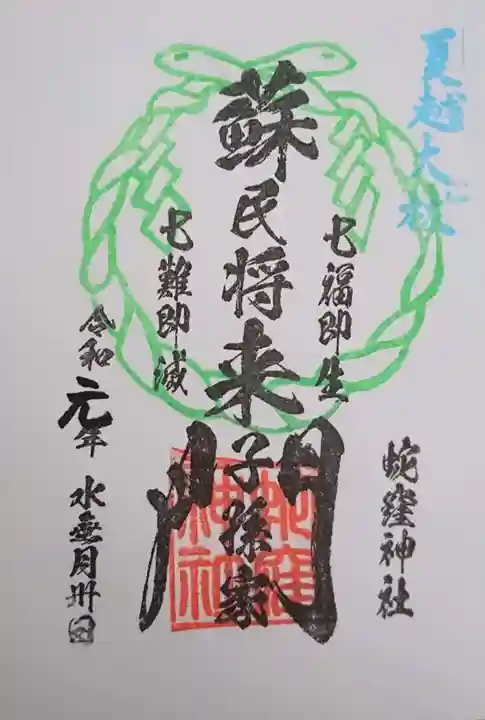 夏越大祓
七福即生
蘇民将来子孫家門
七難即滅
蛇窪神社
令和元年 水無月卅日
蛇窪神社